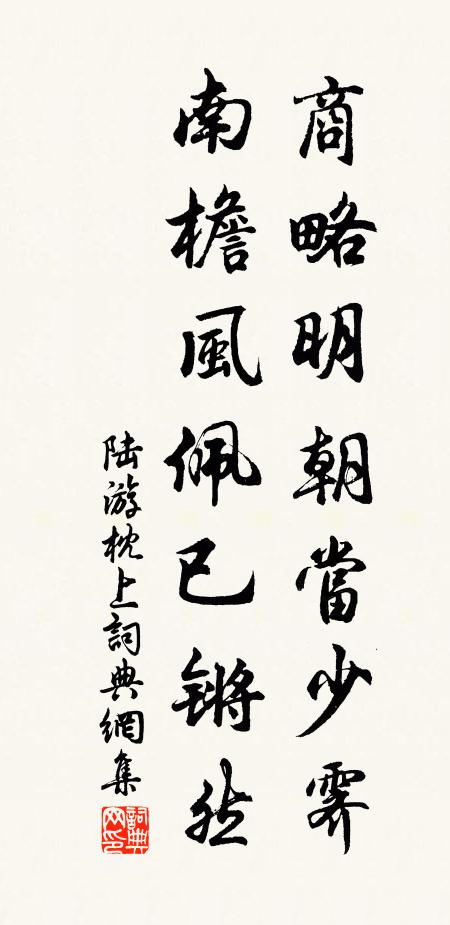 商略明朝當少霽
南檐風佩已锵然
陆游枕上詞典網集
詞典
网印